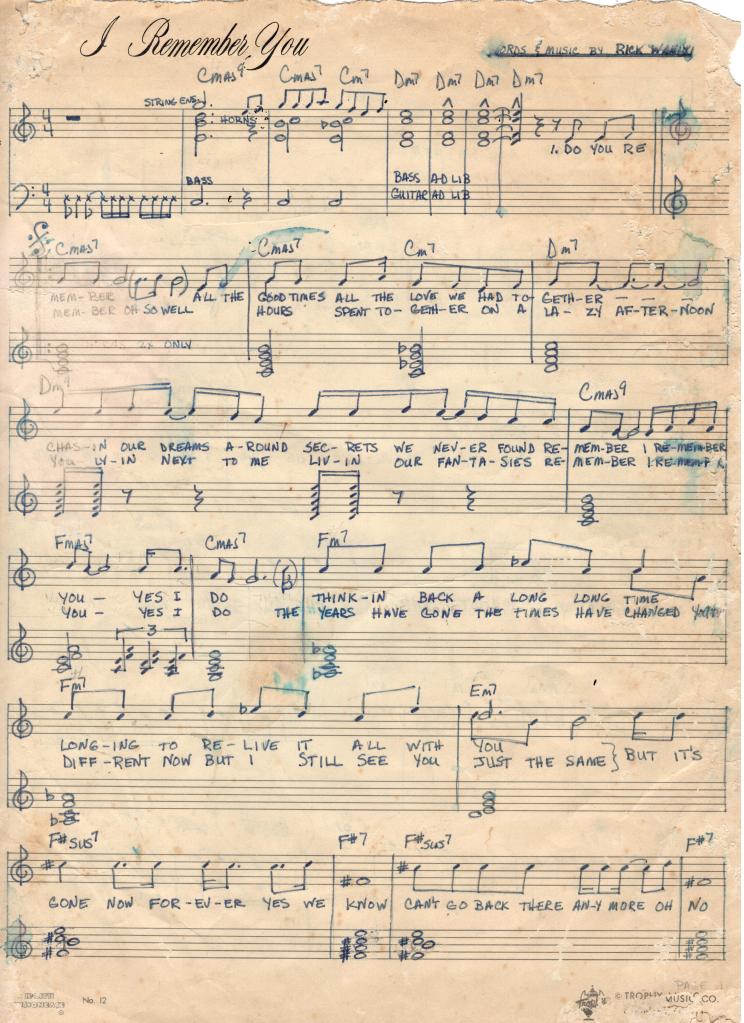 I Remember You
WORDS & MUSIC BY RICK
Cmaj9 Cmaj7 Cm7 Dm7 Dm7 Dm7 Dm7
STRING ENS. HORNS
1. DO YOU RE
BASS BASS AD LIB
GUITAR AD LIB
Cmaj7 Cmaj7 Cm7 Dm7
MEM-BER ALL THE GOOD TIMES ALL THE LOVE WE HAD TO- GETH-ER
MEM-BER OH SO WELL HOURS SPENT TO-GETH-ER ON A LA-ZY AF-TER-NOON
2X ONLY
Dm7 Cmaj9
CHAS-IN OUR DREAMS A-ROUND SEC-RETS WE NEV-ER FOUND RE- MEM-BER I RE-MEM-BER
YOU LY-IN NEXT TO ME LIV-IN OUR FAN-TA-SIES RE- MEM-BER I RE-MEM-BER
Fmaj7 Cmaj7 Fm7
YOU- YES I DO THINK-IN BACK A LONG LONG TIME
YOU- YES I DO THE YEARS HAVE GONE THE TIMES HAVE CHANGED
3
Fm7 Em7
LONG-ING TO RE-LIVE IT ALL WITH YOU
DIFF-RENT NOW BUT I STILL SEE YOU JUST THE SAME} BUT IT'S
F#sus7 F#7 F#sus7 F#7
GONE NOW FOR-EV-ER YES WE KNOW CAN'T GO BACK THERE AN-Y MORE OH NO
PAGE 1
No. 12 © TROPHY MUSIC CO.